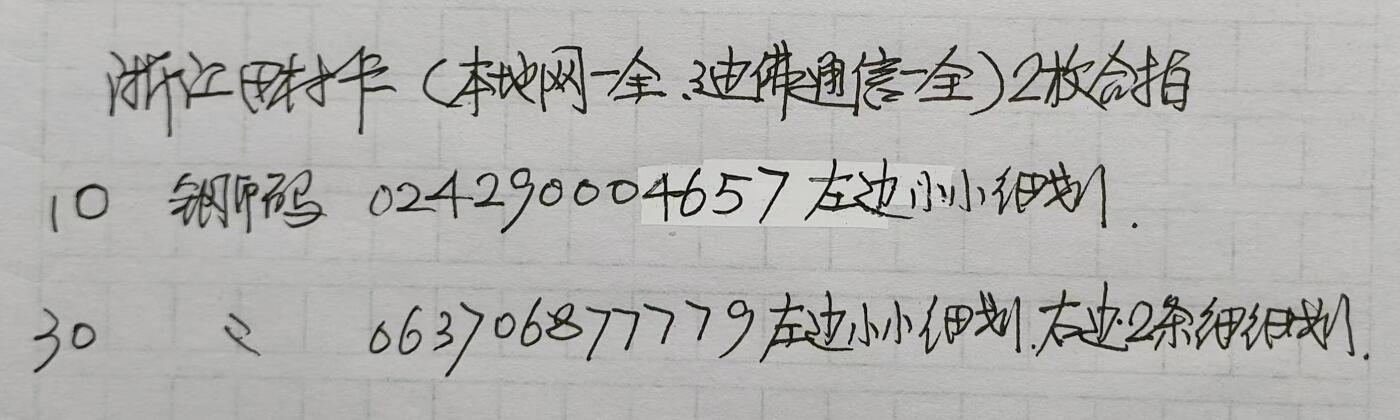 浙江田村卡(本地网一全、迪佛通信一全)2枚合拍
10 钢印码 024290004657左边小小细划.
30 〃 063706877779左边小小细划.右边2条细细划.